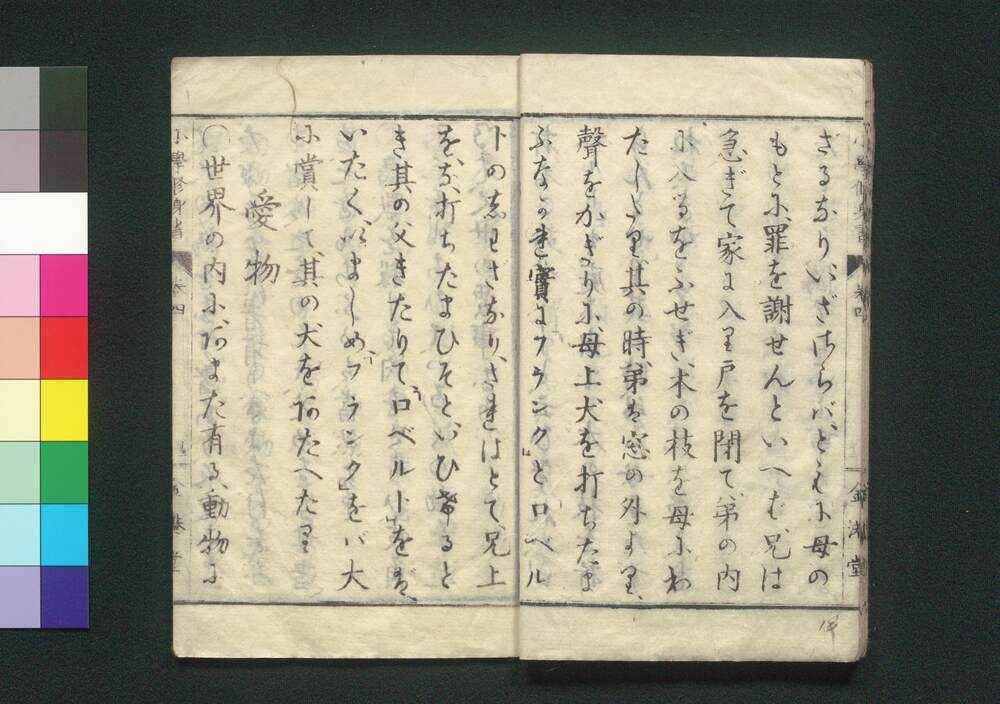 ざるなり、いざさらバ、ともに母の
もとに、罪を謝せんといへば、兄は
急ぎて家に入り戸を閉て、弟の内
に入るをふせぎ、木の枝を母にわ
たしたり、其の時、弟は窓の外より、
聲をかぎりに、母上犬を打ちたま
ふなかれ實にフランクとロベル
トのしわざなり、されはとて兄上
を、な、打ちたまひそと、いひけると
き其の父きたりて「ロベルト」をば、
いたく、いましめ「フランク」をバ大
に賞して、其の犬をあたへたり
愛物
○世界の内に、あまた有る、動物に
小學修身書
卷四
金港堂